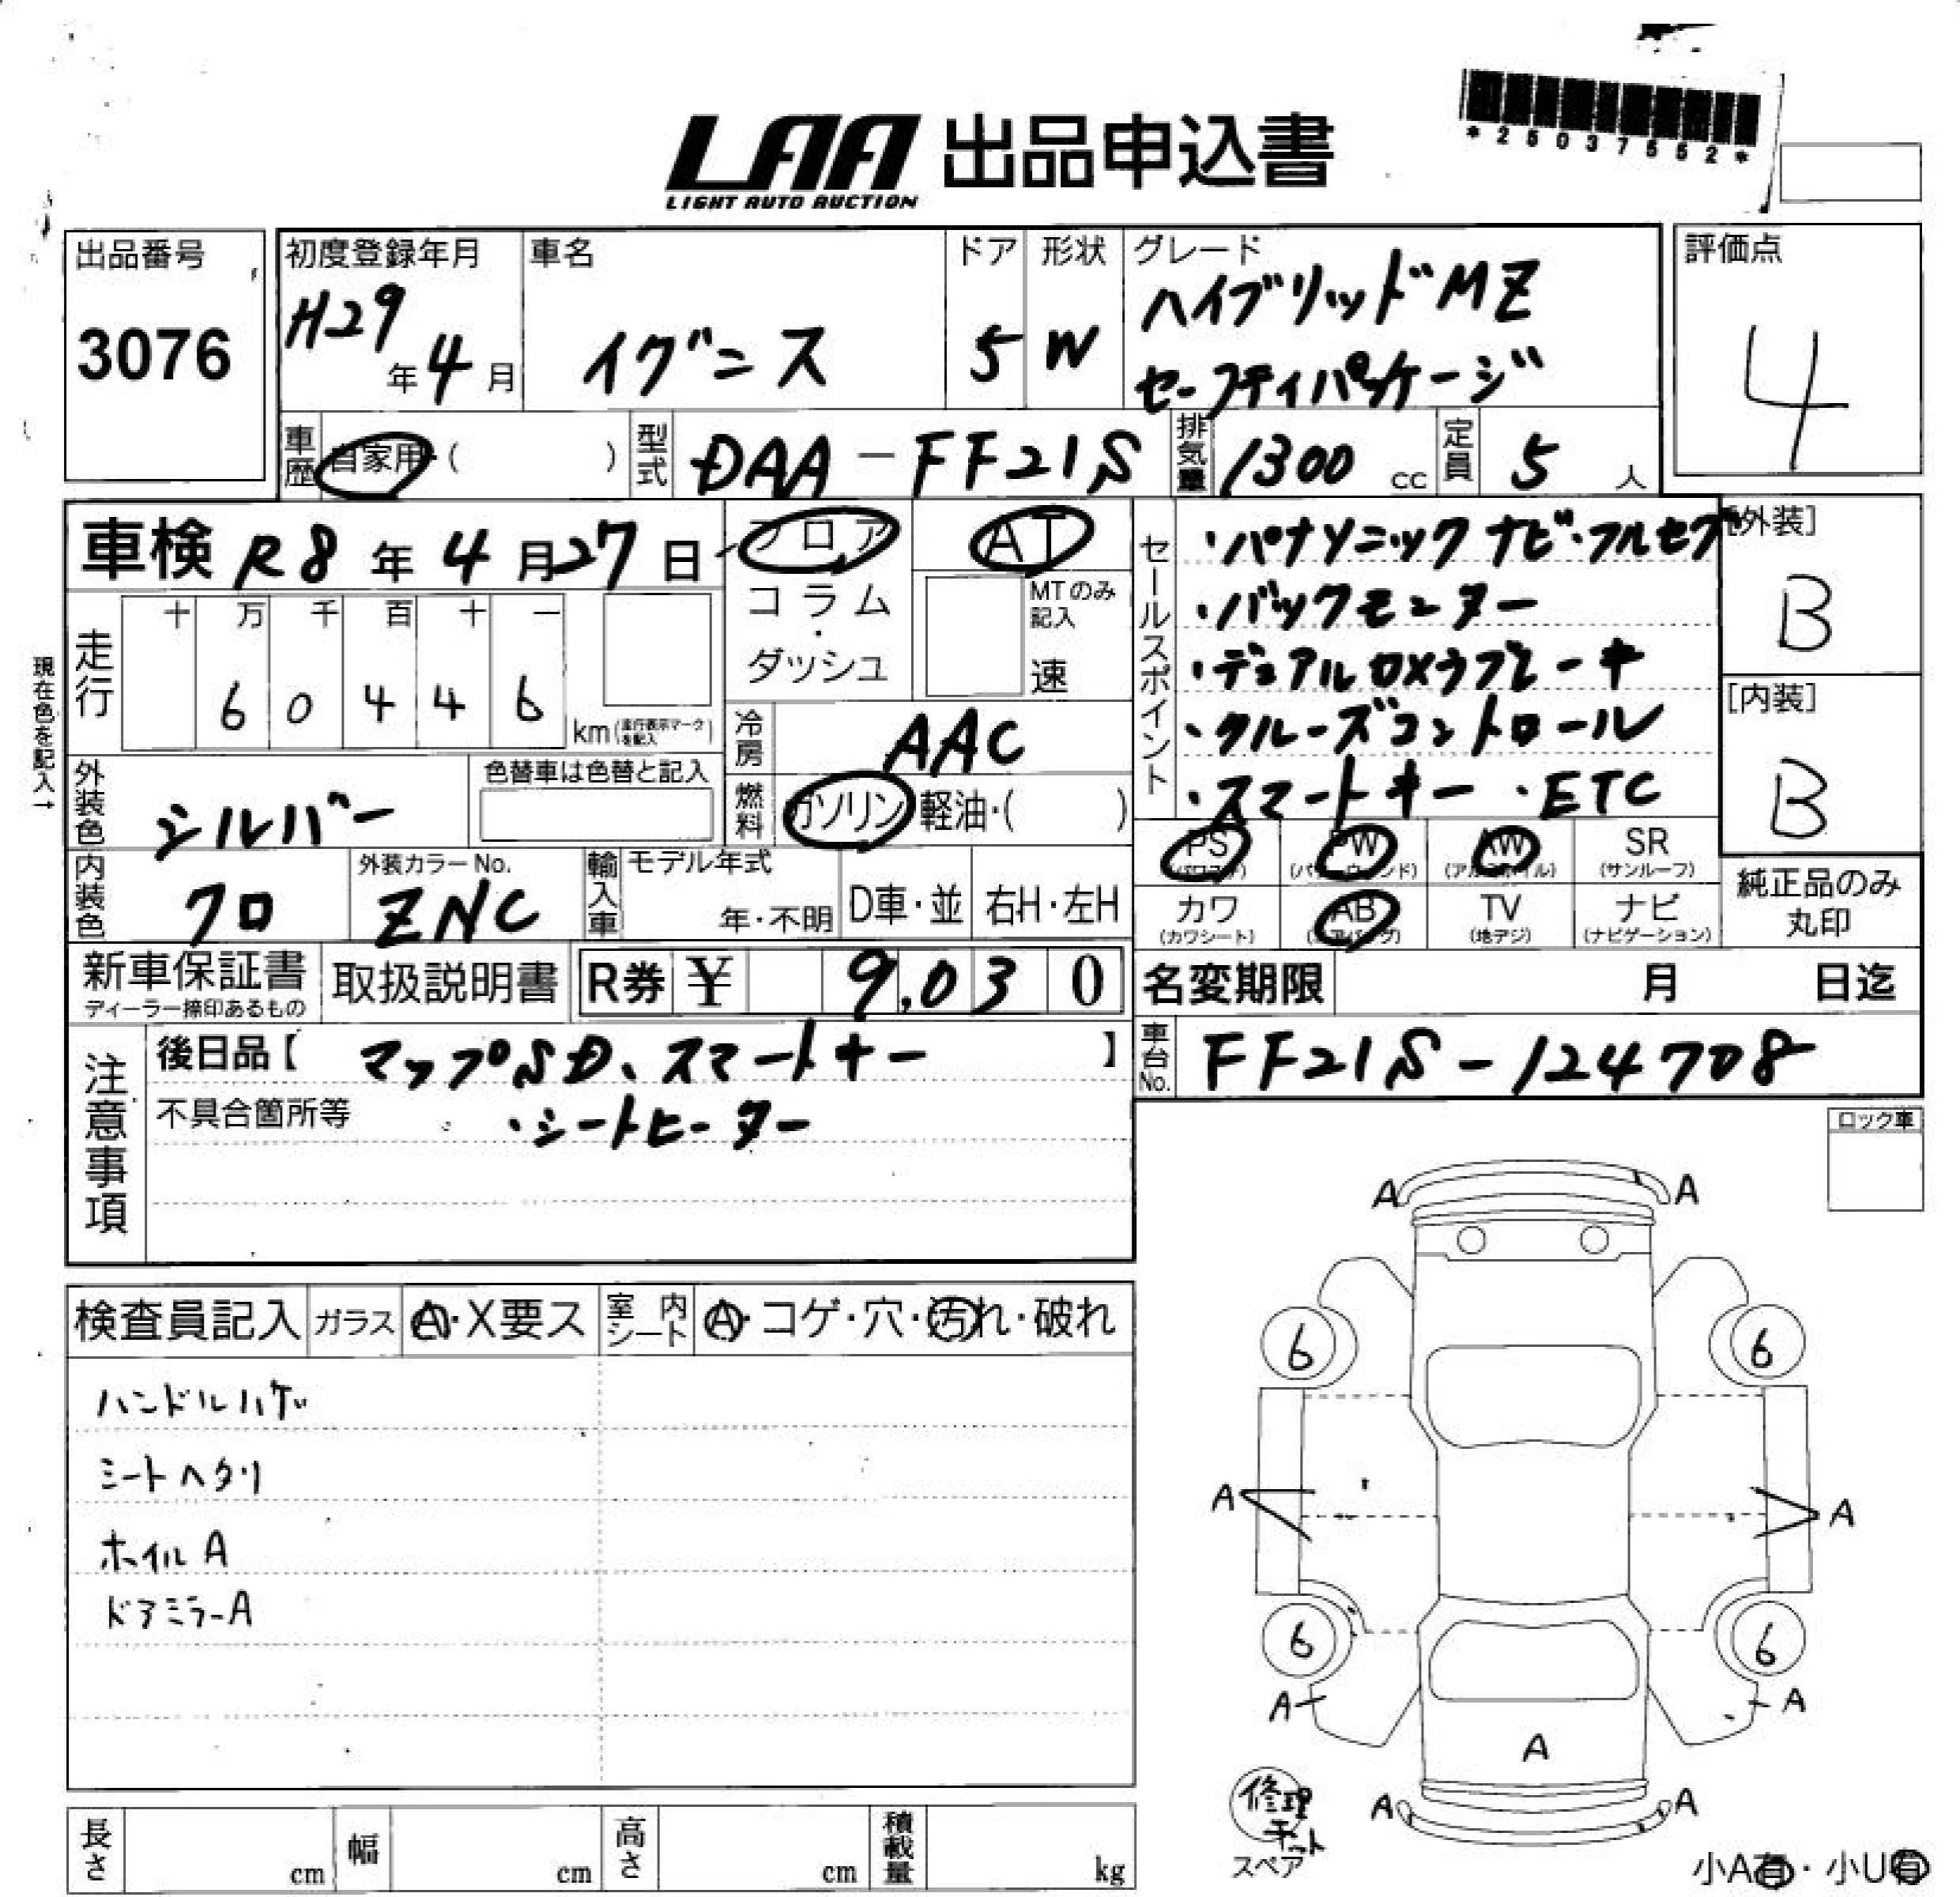 LAA 出品申込書
LIGHT AUTO AUCTION
*25037552*
出品番号
3076
初度登録年月
H29年4月
車名
イグニス
ドア
5
形状
W
グレード
ハイブリッドMZ
セーフティパッケージ
評価点
4
車歴
自家用・( )
型式
DAA-FF21S
排気量
1300 cc
定員
5 人
車検 R8年4月27日
フロア
コラム・ダッシュ
AT
MTのみ記入
速
セールスポイント
・パナソニックナビ・フルセグ
・バックモニター
・デュアルカメラブレーキ
・クルーズコントロール
・スマートキー ・ETC
[外装]
B
[内装]
B
現在色を記入→
走行
十 万 千 百 十 一
6 0 4 4 6
km (走行表示マークを記入)
冷房
AAC
燃料
ガソリン 軽油・( )
外装色
シルバー
色替車は色替と記入
内装色
クロ
外装カラーNo.
ZNC
輸入車
モデル年式
年・不明
D車・並
右H・左H
PS (パワステ)
PW (パワーウィンド)
AW (アルミホイル)
SR (サンルーフ)
カワ (カワシート)
AB (エアバッグ)
TV (地デジ)
ナビ (ナビゲーション)
純正品のみ
丸印
新車保証書
ディーラー捺印あるもの
取扱説明書
R券 ¥ 9,030
名変期限 月 日迄
注意事項
後日品【 マップSD、スマートキー 】
不具合箇所等 ・シートヒーター
車台No.
FF21S-124708
ロック車
検査員記入
ガラス
A・X要ス
室内シート
A・コゲ・穴・汚れ・破れ
ハンドルハゲ
シートヘタリ
ホイルA
ドアミラーA
A A
6 6
A A
6 6
A A
A
A A
修理キット
スペア
小A有・小U有
長さ cm
幅 cm
高さ cm
積載量 kg